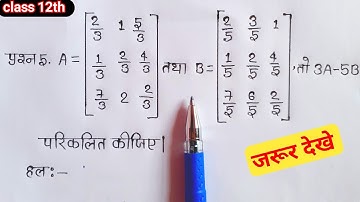 class 12th
प्रश्न5. A = [2/3 1 5/3; 1/3 2/3 4/3; 7/3 2 2/3] तथा B = [2/5 3/5 1; 1/5 2/5 4/5; 7/5 6/5 2/5], तो 3A-5B
परिकलित कीजिए।
हलः-
जरूर देखे